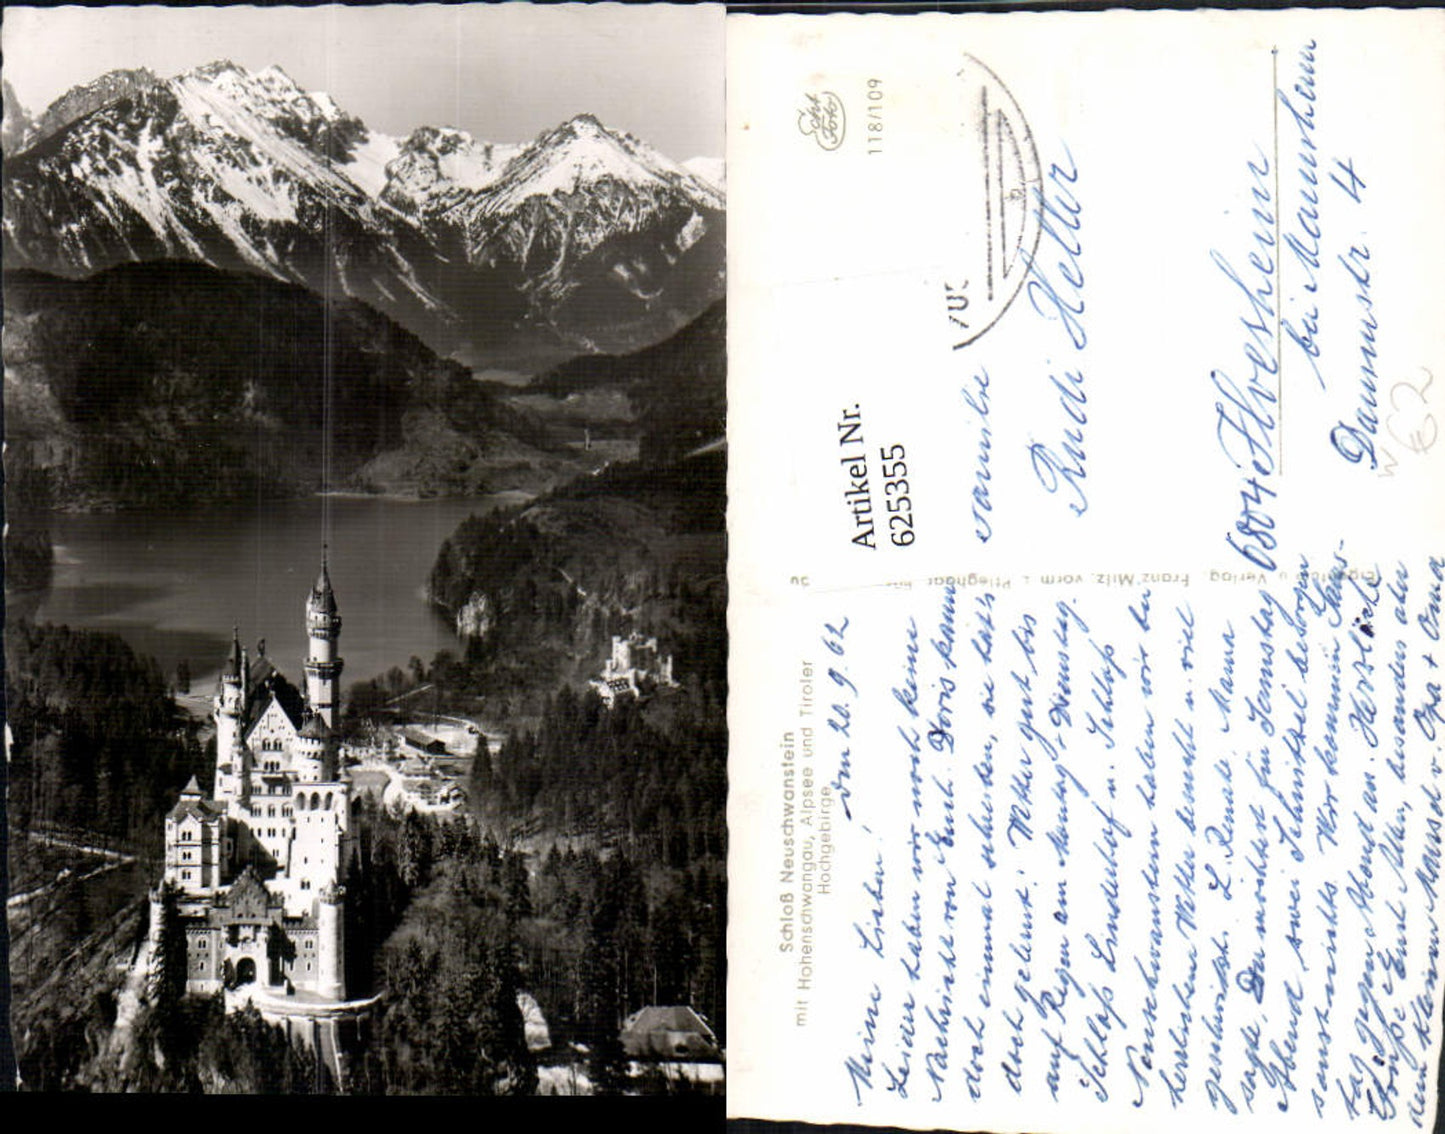 Schloß Neuschwanstein
mit Hohenschwangau, Alpsee und Tiroler
Hochgebirge
den 20.9.62
Meine Lieben!
Leider haben wir noch keine
Nachricht von Euch. Doris kann
doch einmal schreiben, sie hat's
doch gelernt! Wetter gut bis
auf Regen am Montag + Dienstag.
Schloß Linderhof u. Schloß
Neuschwanstein haben wir bei
herrlichem Wetter besucht u. viel
gesichtet. L. Renate, Mama
sagte, Du möchtest für Samstag
Abend zwei Schnitzel besorgen
sonst nichts. Wir kommen Sams-
tag gegen Abend an. Herzliche
Grüße Euch Allen, besonders aber
dem kleinen Mausel v. Opa + Oma
Eigentum u. Verlag Franz Milz, vorm.
Artikel Nr.
625355
118/109
Familie
Rudi Heller
6804 Ilvesheim
bei Mannheim
Dammstr. 4